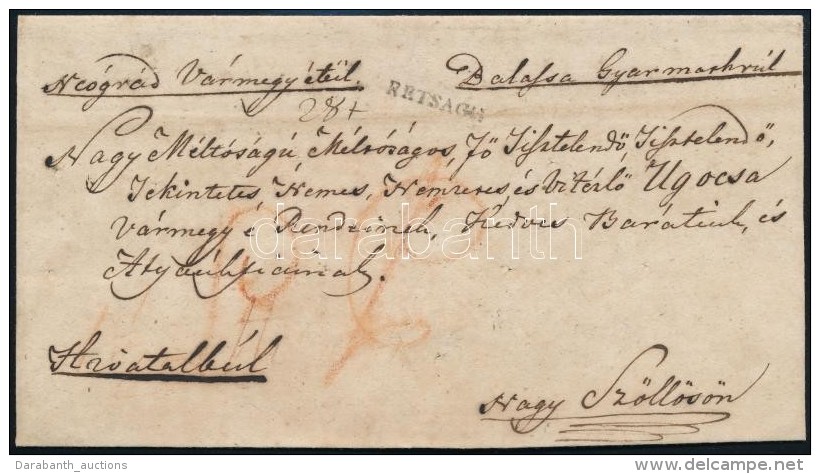 Neógrád Vármegyétül.
Balassa Gyarmathrúl
RETSAGH
Nagy Méltóságú, Méltóságos, Fő Tisztelendő, Tisztelendő,
Tekintetes, Nemes, Nemzetes, és Vitézlő Ugocsa
Vármegye Rendeinek, Kedves Barátink, és
Atyánkfiainak.
darabanth
Hivatalbúl
Nagy Szöllösön
Darabanth_auctions
www.delcampe.net